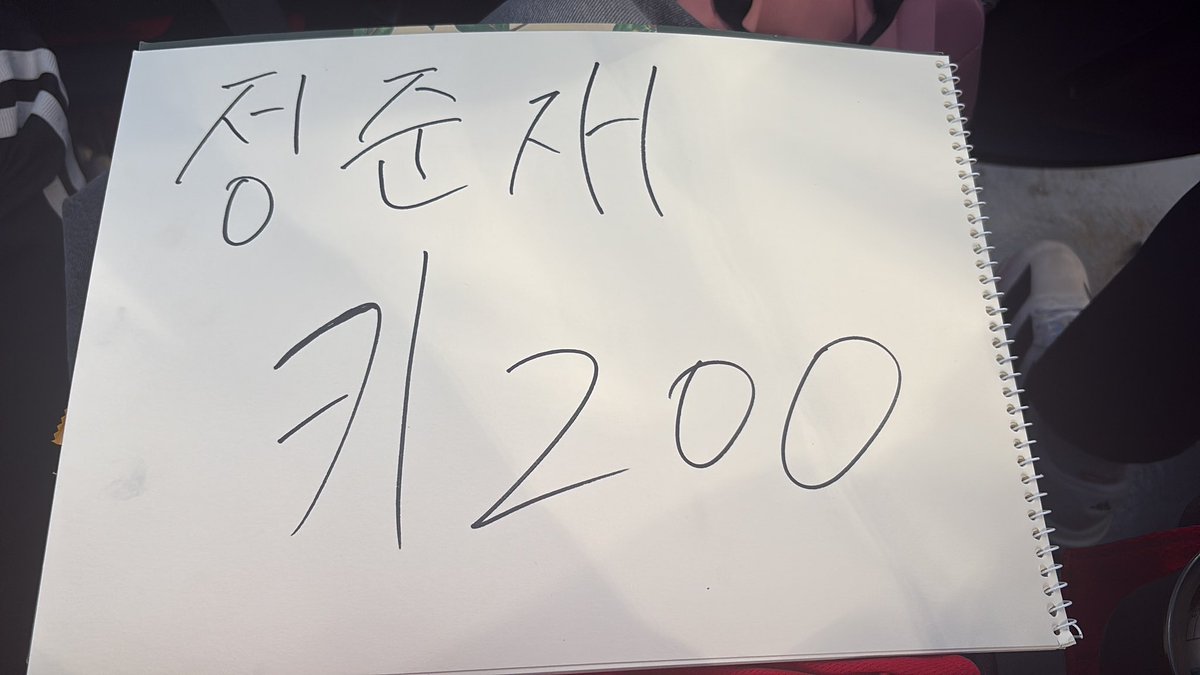 정준재
키 200